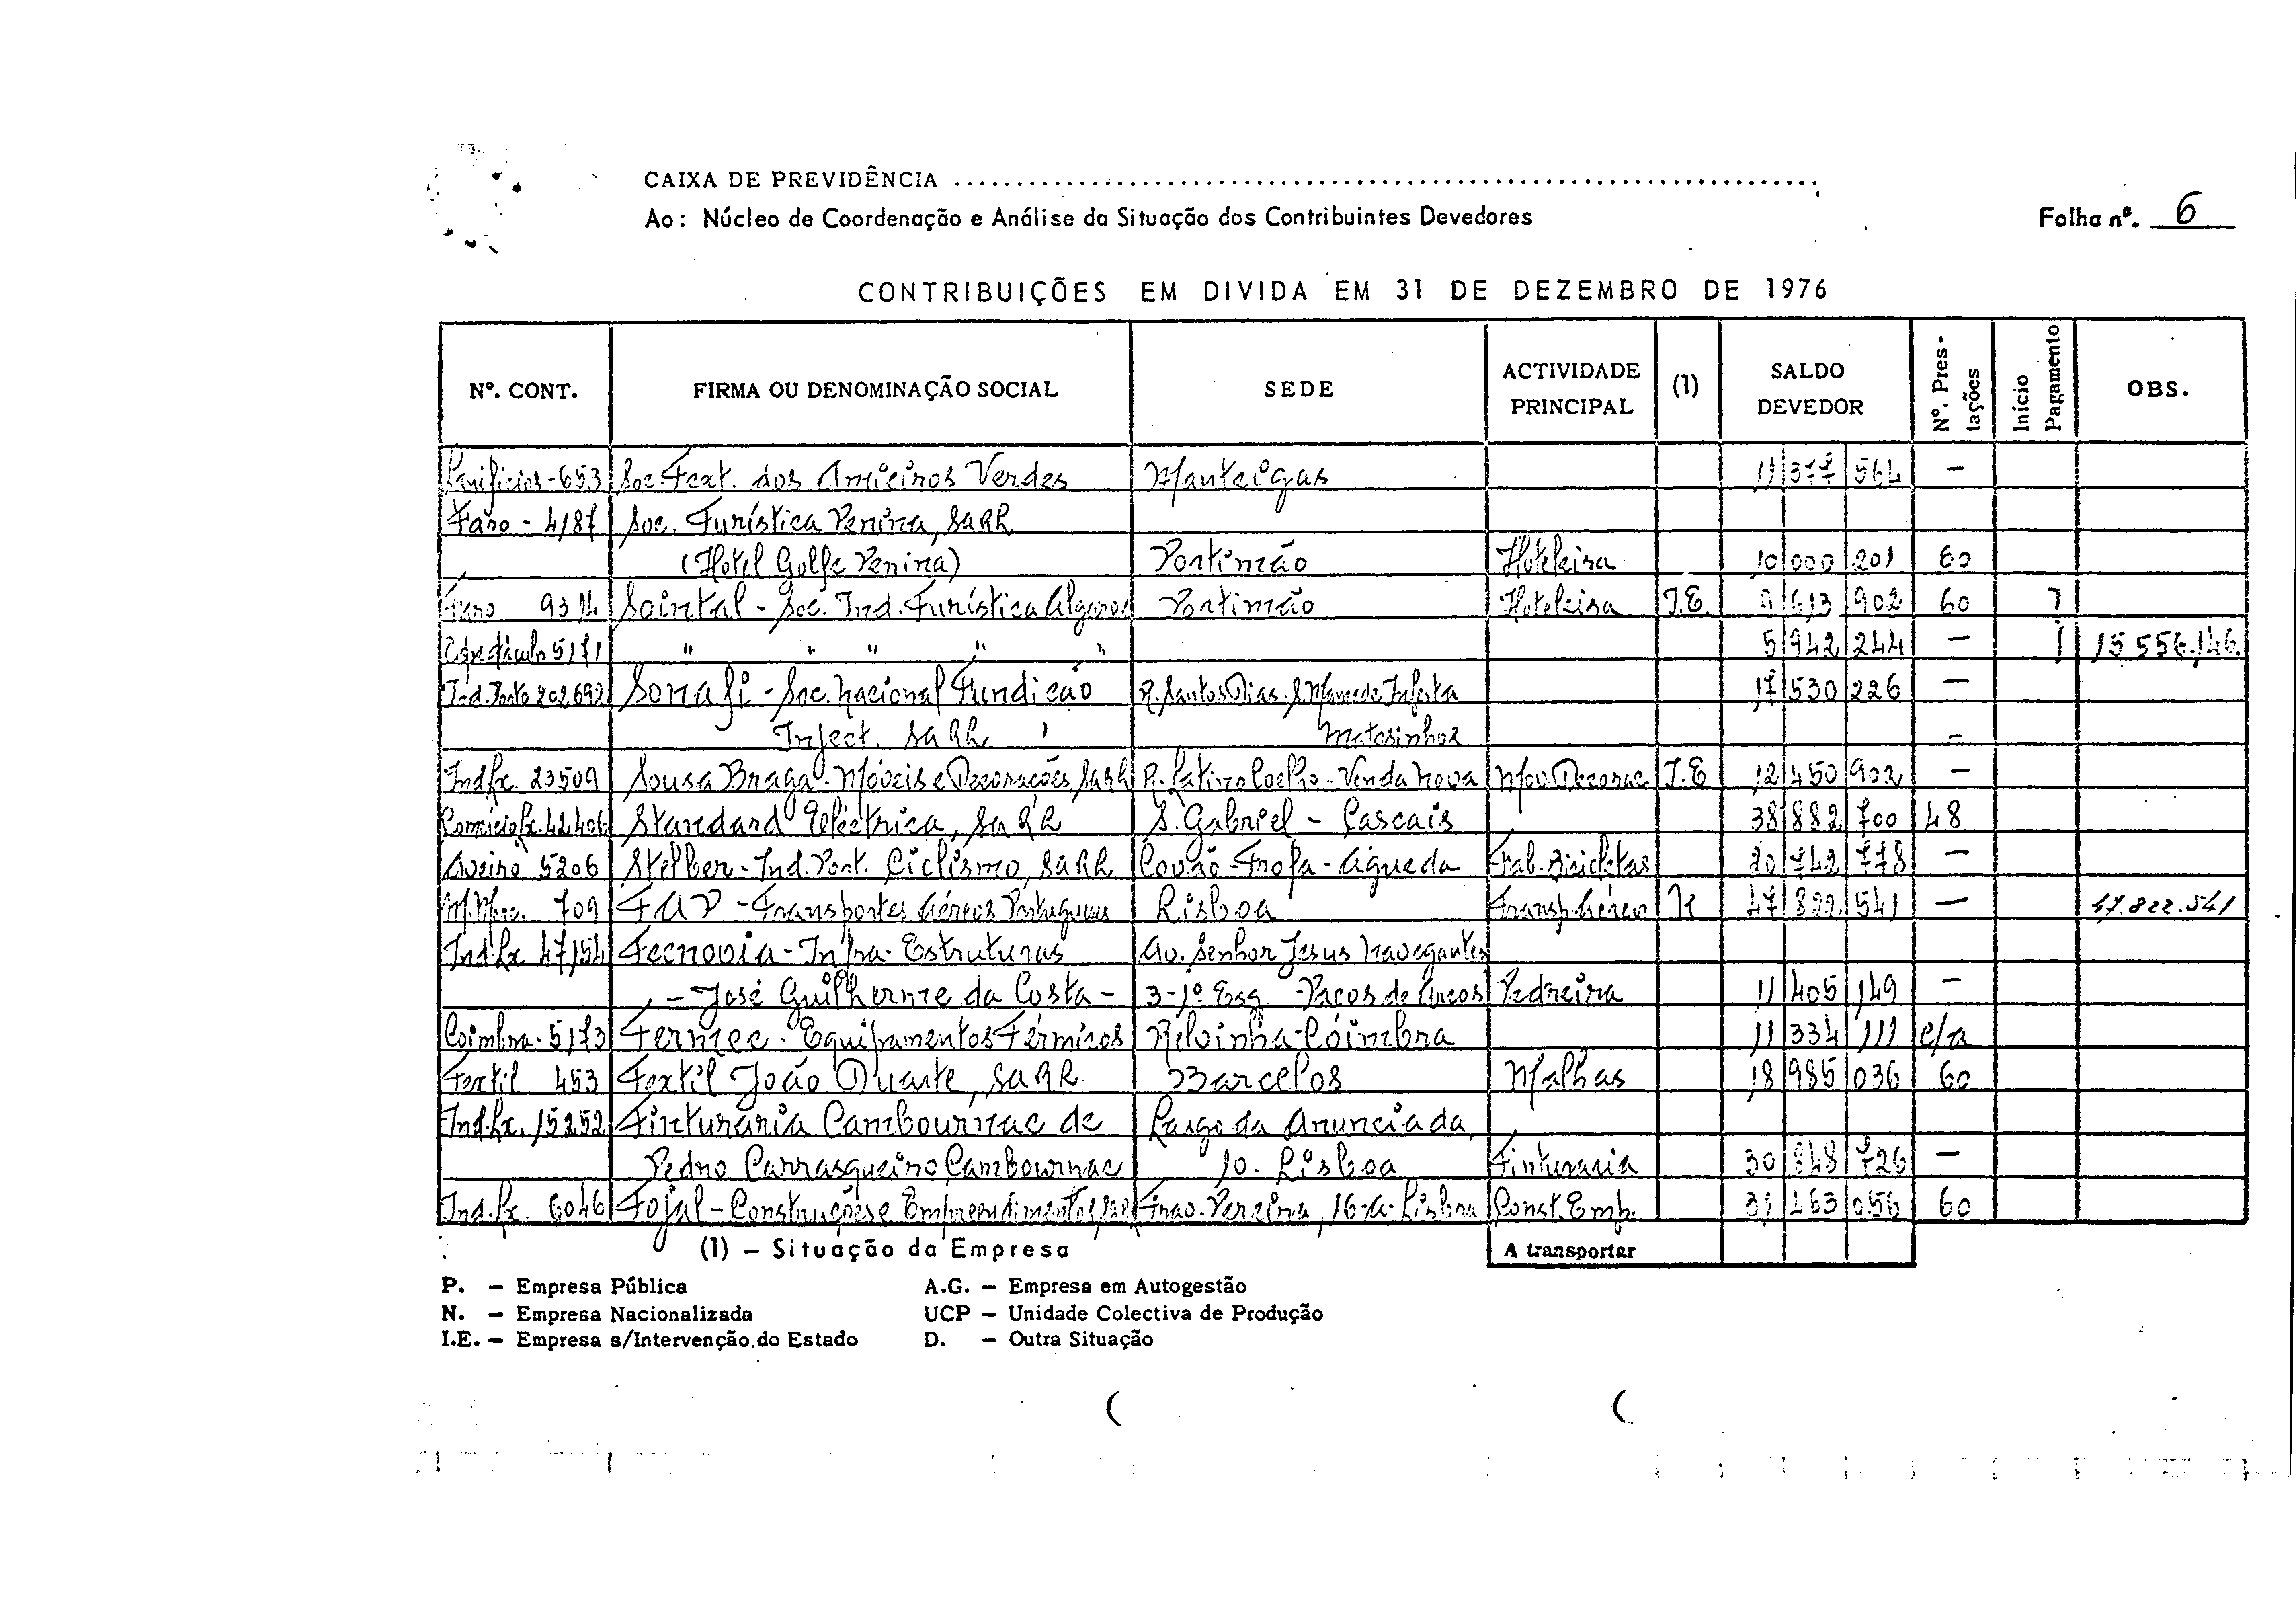 CAIXA DE PREVIDÊNCIA
Ao: Núcleo de Coordenação e Análise da Situação dos Contribuintes Devedores
Folha nº. 6
CONTRIBUIÇÕES EM DIVIDA EM 31 DE DEZEMBRO DE 1976
Nº. CONT. FIRMA OU DENOMINAÇÃO SOCIAL SEDE ACTIVIDADE PRINCIPAL (1) SALDO DEVEDOR Nº. Pres-tações Início Pagamento OBS.
Lanifícios-653 Soc. Text. dos Amieiros Verdes Manteigas 11 377 564 —
Faro - 4187 Soc. Turística Penina, SARL
(Hotel Golfe Penina) Portimão Hoteleira 10 000 201 60
Faro 9314 Sointal - Soc. Ind. Turística Algarve Portimão Hoteleira I.E. 9 613 902 60
Espectáculo 5171 " " " " " 5 942 244 — 15 556.146.
Ind. Porto 202692 Sonafi - Soc. Nacional Fundicão R. Santos Dias. S. Mamede Infesta 17 530 226 —
Inject. SARL Matosinhos —
Ind Lx. 23509 Sousa Braga - Móveis e Decorações, Sarl R. Latino Coelho - Venda Nova Mov. Decorac I.E 12 450 902 —
Comércio Lx. 42406 Standard Eléctrica, SARL S. Gabriel - Cascais 38 882 700 48
Aveiro 5206 Stelber - Ind. Port. Ciclismo, SARL Covão - Trofa - Agueda Fab. Bicicletas 20 742 778 —
709 TAP - Transportes Aéreos Portugueses Lisboa Transp. Aéreo N 47 822 541 — 47.822.541
Ind. Lx 47154 Tecnovia - Infra-Estruturas Av. Senhor Jesus Navegantes
- José Guilherme da Costa - 3-1º Esq. - Paços de Arcos Pedreira 11 405 149 —
Coimbra - 5173 Termec - Equipamentos Térmicos Relvinha - Coimbra 11 334 111 c/a
Textil 453 Textil João Duarte, SARL Barcelos Malhas 18 985 036 60
Ind. Lx. 15252 Tinturaria Cambournac de Largo da Anunciada,
Pedro Carrasqueiro Cambournac 10. Lisboa Tinturaria 30 848 726 —
Ind. Lx. 6046 Tojal - Construções e Empreendimentos, Trav. Pereira, 16-A - Lisboa Const. Emp. 31 463 056 60
(1) — Situação da Empresa A transportar
P. — Empresa Pública A.G. — Empresa em Autogestão
N. — Empresa Nacionalizada UCP — Unidade Colectiva de Produção
I.E. — Empresa s/Intervenção do Estado D. — Outra Situação